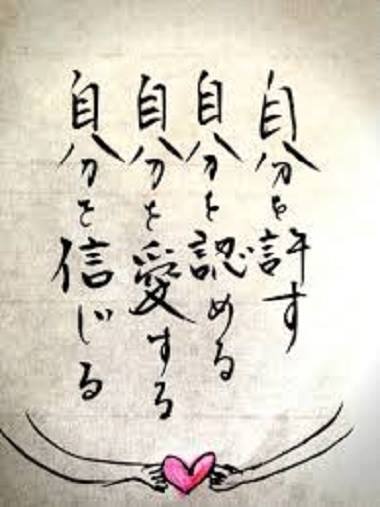 自分を許す
自分を認める
自分を愛する
自分を信じる